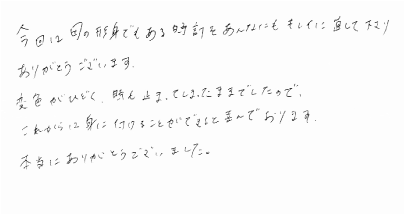 今回は母の形身でもある時計をあんなにもキレイに直して下さり
ありがとうございます。
変色がひどく、時も止まってしまったままでしたので、
これからは身に付けることができると喜んでおります。
本当にありがとうございました。